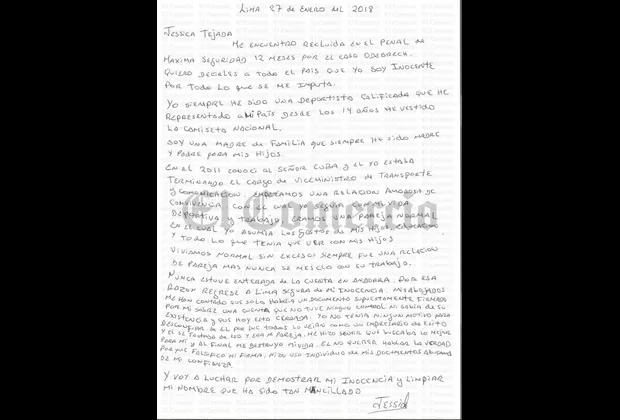 LIMA 27 DE ENERO DEL 2018
JESSICA TEJADA
ME ENCUENTRO RECLUIDA EN EL PENAL DE
MAXIMA SEGURIDAD 12 MESES POR EL CASO ODEBRECH.
QUIERO DECIRLES A TODO EL PAIS QUE YO SOY INOCENTE
POR TODO LO QUE SE ME IMPUTA.
YO SIEMPRE HE SIDO UNA DEPORTISTA CALIFICADA QUE HE
REPRESENTADO A MI PAIS DESDE LOS 14 AÑOS HE VESTIDO
LA CAMISETA NACIONAL.
SOY UNA MADRE DE FAMILIA QUE SIEMPRE HE SIDO MADRE
Y PADRE PARA MIS HIJOS.
EN EL 2011 CONOCI AL SEÑOR CUBA Y EL YA ESTABA
TERMINANDO EL CARGO DE VICEMINISTRO DE TRANSPORTE
Y COMUNICACION. EMPEZAMOS UNA RELACION AMOROSA DE
CONVIVENCIA CON EL CUAL YO SEGUIA CON MI VIDA
El Comercio
DEPORTIVA Y TRABAJO, ERAMOS UNA PAREJA NORMAL
EN EL CUAL YO ASUMIA LOS GASTOS DE MIS HIJOS, EDUCACION
Y TODO LO QUE TENIA QUE VER CON MIS HIJOS
VIVIAMOS NORMAL SIN EXCESOS SIEMPRE FUE UNA RELACION
DE PAREJA MAS NUNCA SE MESCLO CON SU TRABAJO.
NUNCA ESTUVE ENTERADA DE LA CUENTA EN ANDORRA. POR ESA
RAZON REGRESE A LIMA SEGURA DE MI INOCENCIA. MIS ABOGADOS
ME HAN CONTADO QUE SOLO HABRIA UN DOCUMENTO SUPUESTAMENTE FIRMADO
POR MI SOBRE UNA CUENTA QUE NO TUVE NINGUN CONTROL NI SABIA DE SU
EXISTENCIA Y QUE HOY ESTA CERRADA. YO NO TENIA NINGUN MOTIVO PARA
DESCONFIAR DE EL POR QUE TODOS LO VEIAN COMO UN EMPRESARIO DE EXITO
Y EL SE JACTABA DE ESO Y SER MI PAREJA. ME HIZO SENTIR QUE BUSCABA LO MEJOR
PARA MI Y AL FINAL ME DESTRUYO MI VIDA. EL NO QUERER HABLAR LA VERDAD
PORQUE FALSIFICO MI FIRMA, HIZO USO INDIVIDUO DE MIS DOCUMENTOS ABUSANDO
DE MI CONFIANZA.
Y VOY A LUCHAR POR DEMOSTRAR MI INOCENCIA Y LIMPIAR
MI NOMBRE QUE HA SIDO TAN MANCILLADO
Jessica